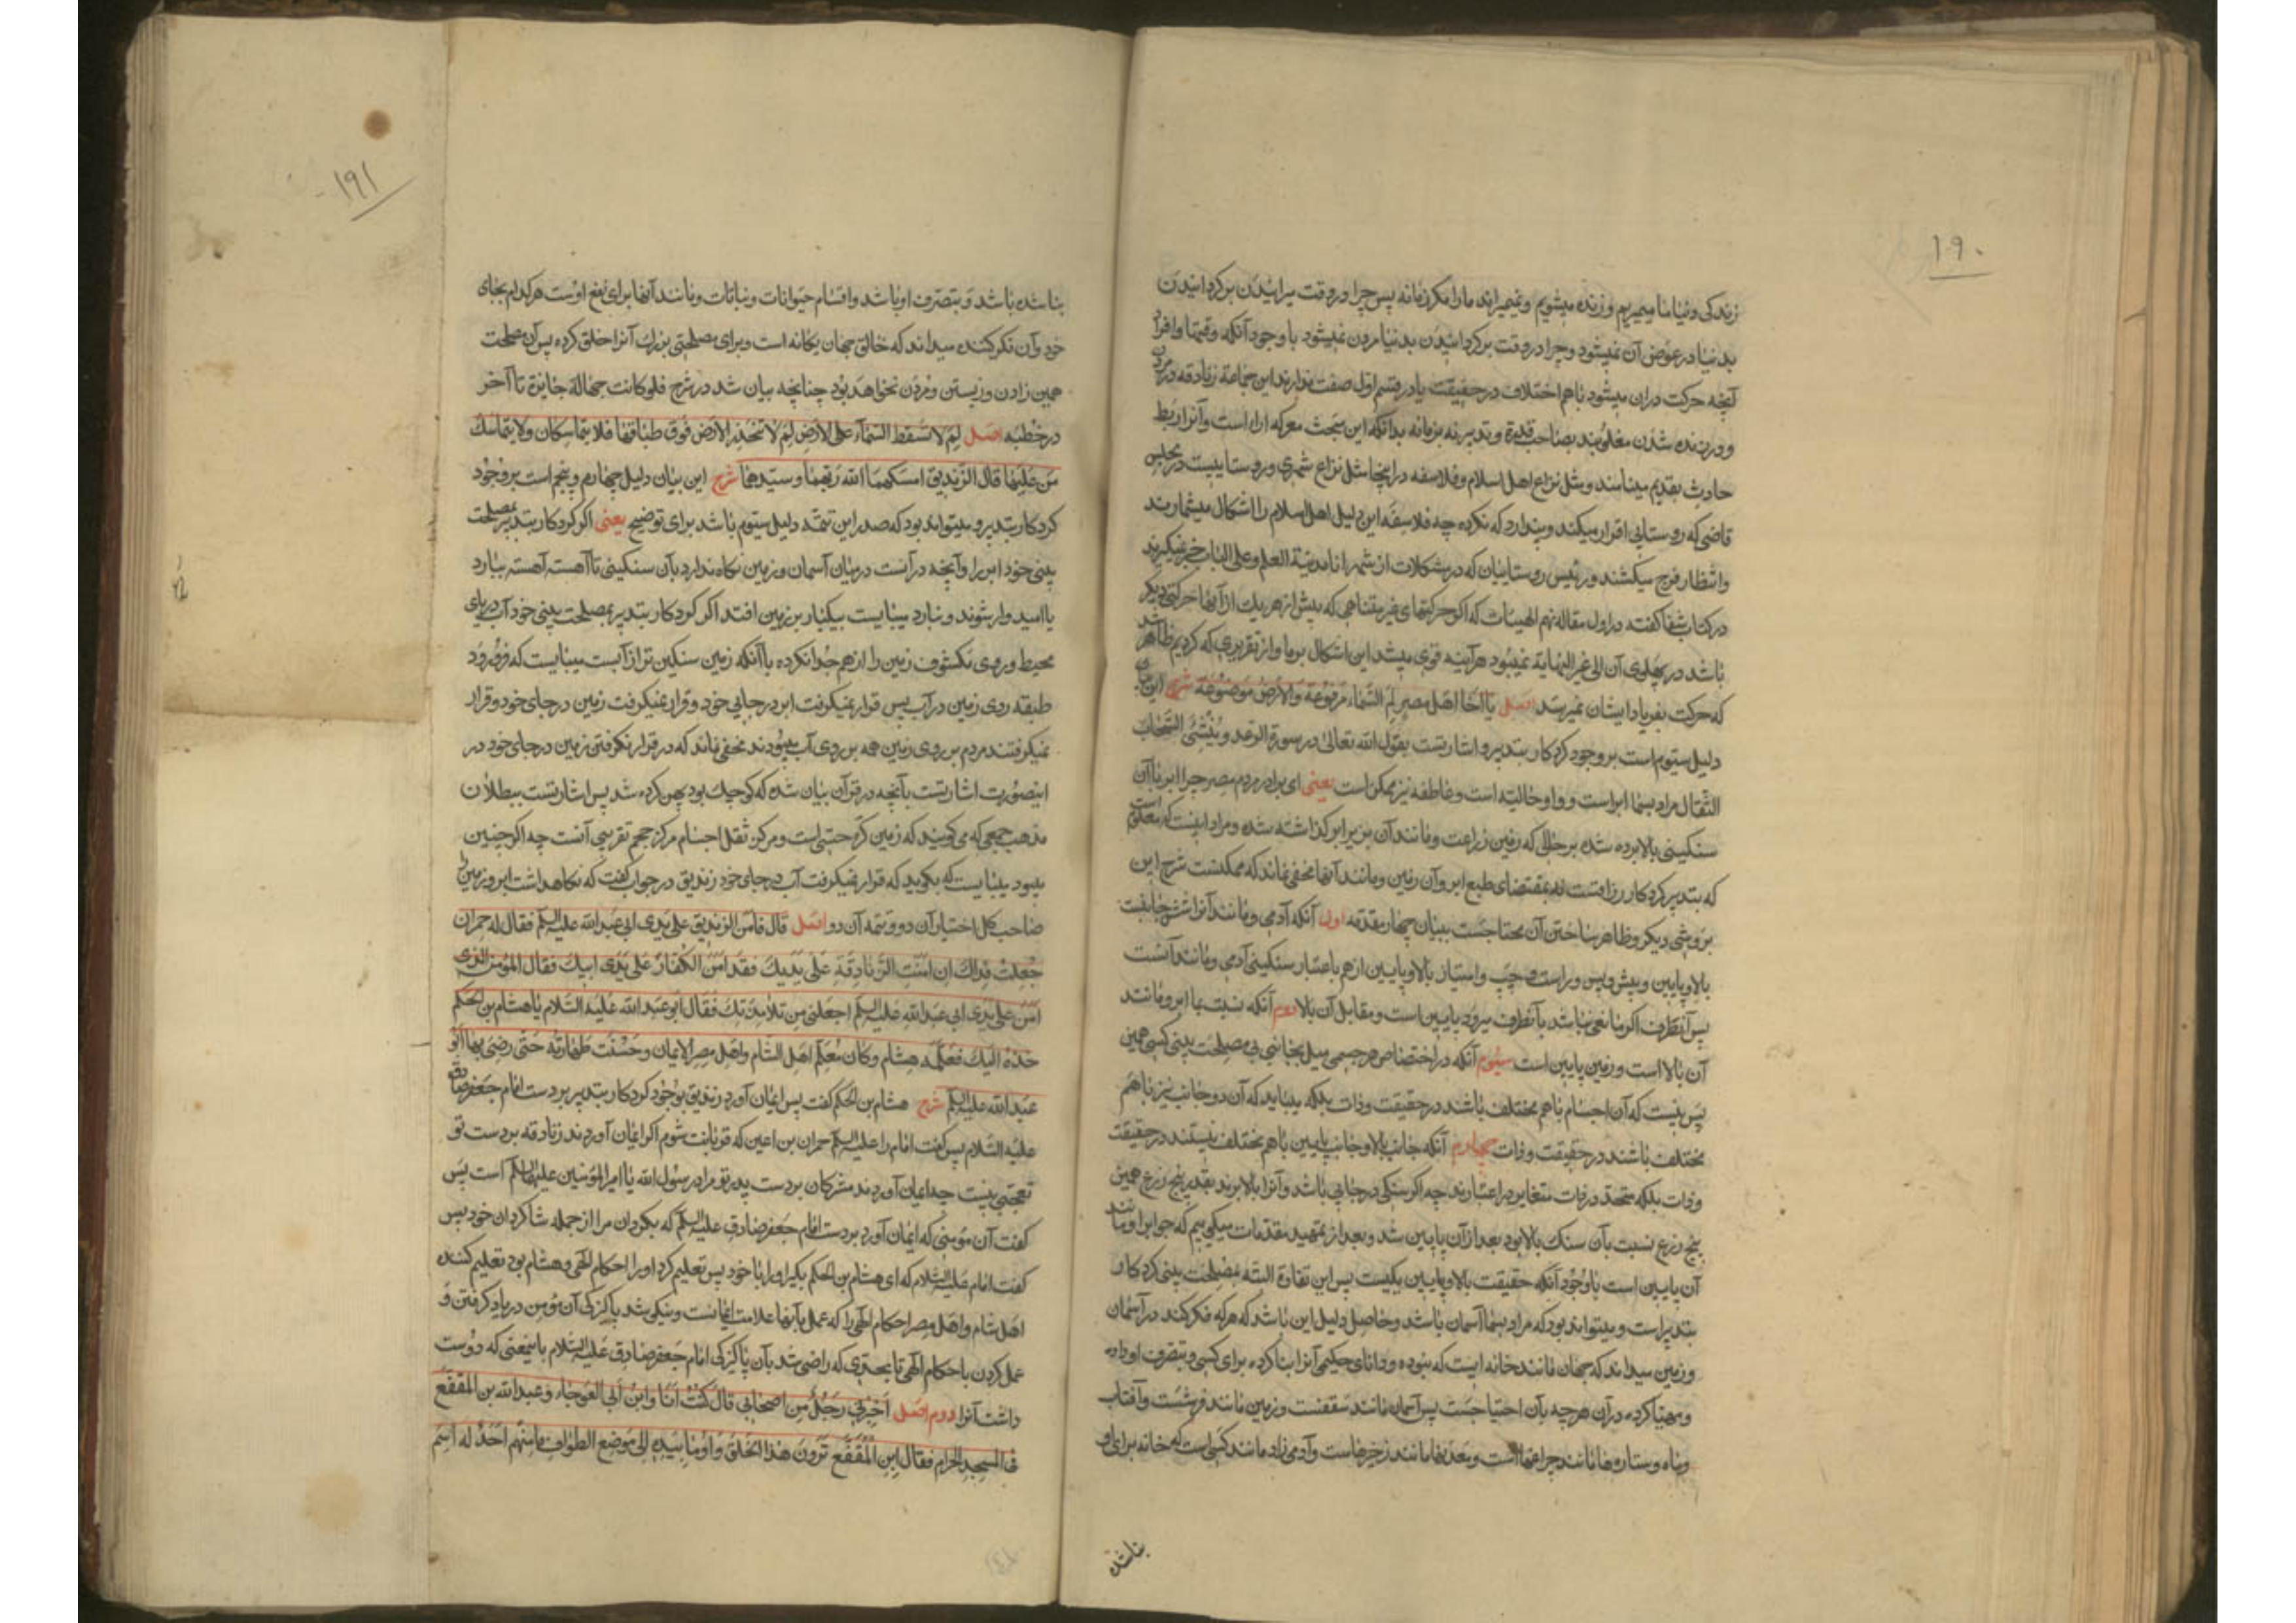 ۱۹۰
زندگی دنیا ما میمیریم و زنده میشویم و نمیمیراند ما را مگر زمانه پس چرا در وقت میرانیدن برگردانیدن
بدنیا در عوض آن نمیشود و چرا در وقت برگردانیدن بدنیا مردن نمیشود با وجود آنکه وقتها و افراد
آنچه حرکت دران میشود باهم اختلاف در حقیقت یا در قسم اول صفت ندارند این جماعة زنادقه در مردن
و زنده شدن مغلوبند بصاحب قدرة و تدبیر نه بزمانه بدانکه این مبحث معرکه اراء است و آنرا ربط
حادث بقدیم مینامند و مثل نزاع اهل اسلام و فلاسفه در اینجا مثل نزاع شهری و روستاییست در مجلس
قاضی که روستایی اقرار میکند و پندارد که نکرده چه فلاسفه این دلیل اهل اسلام را اشکال میشمارند
و انتظار فرج میکشند و رئیس روستاییان که در مشکلات از شهر انا مدینة العلم و علی الباب خبر نمیگیرند
در کتاب شفا گفته در اول مقاله نهم الهیات که اگر حرکتهای غیر متناهی که پیش از هر یک از آنها حرکتی دیگر
باشد در پهلوی آن الی غیر النهایة نمیبود هرآینه قوی میشد این اشکال بر ما و از تقریری که کردیم ظاهر شد
که حرکت بفریاد ایشان نمیرسد اصل یا اخا اهل مصر لم السماء مرفوعة و الارض موضوعة شرح این بیان
دلیل سیوم است بر وجود کردکار بتدبیر و اشارتست بقول الله تعالی در سورة الرعد و ینشئ السحاب
الثقال مراد بسما ابر است و واو حالیه است و عاطفه نیز ممکن است یعنی ای برادر مردم مصر چرا ابر با آن
سنکینی بالا برده شده بر حالی که زمین زراعت و مانند آن بزیر ابر گذاشته شده و مراد اینست که معلوم است
که بتدبیر کردکار رزاقست نه بمقتضای طبع ابر و آن زمین و مانند آنها مخفی نماند که ممکنست شرح این
بروشی دیگر و ظاهر ساختن آن محتاجست ببیان چهار مقدمه اول آنکه آدمی و مانند آنرا شش جانبست
بالا و پایین و پیش و پس و راست و چپ و امتیاز بالا و پایین از هم باعتبار سنکینی آدمی و مانند آنست
پس آنطرف اگر مانعی نباشد بآنطرف میرود پایین است و مقابل آن بالا دوم آنکه نسبت بما ابر و مانند
آن بالا است و زمین پایین است سیوم آنکه در اختصاص هر جسمی میل بجانبی بی مصلحت بینی کسی همین
بس نیست که آن اجسام باهم مختلف باشند در حقیقت و ذات بلکه میباید که آن دو جانب نیز باهم
مختلف باشند در حقیقت و ذات چهارم آنکه جانب بالا و جانب پایین باهم مختلف نیستند در حقیقت
و ذات بلکه متحد در ذات متغایر در اعتبارند چه اگر سنکی در جایی باشد و آنرا بالا برند بقدر پنج ذرع همین
پنج ذرع نسبت بآن سنک بالا بود بعد از آن پایین شد و بعد از تمهید مقدمات میگوییم که چرا ابر و مانند
آن پایین است با وجود آنکه حقیقت بالا و پایین یکیست پس این تفاوة البته بمصلحت بینی کردکار
بتدبیر است و میتواند بود که مراد بسما آسمان باشد و حاصل دلیل این باشد که هر که فکر کند در آسمان
و زمین میداند که جهان مانند خانه ایست که نبوده و دانای حکیمی آنرا بنا کرده برای کسی و بتصرف او داده
و مهیا کرده در آن هر چه بآن احتیاجست پس آسمان مانند سقفست و زمین مانند فرشست و آفتاب
و ماه و ستاره ها مانند چراغهاست و معدنها مانند ذخیرهاست و آدمی زاد مانند کسی است که خانه برای او
بنا شده
۱۹۱
بنا شده باشد و بتصرف او باشد و اقسام حیوانات و نباتات و مانند آنها برای نفع اوست هر کدام بجای
خود و آن فکر کننده میداند که خالق جهان یگانه است و برای مصلحتی بزرك آنرا خلق کرده پس آن مصلحت
همین زادن و زیستن و مردن نخواهد بود چنانچه بیان شد در شرح فلو کانت جهالة جایزة تا آخر
در خطبه اصل لم لا تسقط السماء علی الارض لم لا تنحدر الارض فوق طباقها فلا یتماسکان و لا یتماسك
من علیها قال الزندیق امسکهما الله ربهما و سیدهما شرح این بیان دلیل چهارم و پنجم است بر وجود
کردکار بتدبیر و میتواند بود که صدر این تتمه دلیل سیوم باشد برای توضیح یعنی اگر کردکار بتدبیر بمصلحت
بینی خود ابر را و آنچه در آنست در میان آسمان و زمین نگاه ندارد بآن سنکینی تا آهسته آهسته ببارد
یا امیدوار شوند و نبارد میبایست بیکبار بر زمین افتد اگر کردکار بتدبیر بمصلحت بینی خود آب دریای
محیط و روی مکشوف زمین را از هم جدا نکرده با آنکه زمین سنکین تر از آبست میبایست که فرو رود
طبقه روی زمین در آب پس قرار نمیگرفت ابر در جایی خود و قرار نمیگرفت زمین در جای خود و قرار
نمیگرفتند مردم بر روی زمین همه بر روی آب میبودند مخفی نماند که در قرار نگرفتن زمین در جای خود در
اینصورت اشارتست بآنچه در قرآن بیان شده که کوچك بود پهن کرده شد پس اشارتست ببطلان
مذهب جمعی که می گویند که زمین کره حسی است و مرکز ثقل اجسام مرکز حجم تقریبی آنست چه اگر چنین
میبود میبایست که بگوید که قرار نمیگرفت آب در جای خود زندیق در جواب گفت که نگاهداشت ابر و زمین را
صاحب کل اختیار آن دو و تتمه آن دو اصل قال فآمن الزندیق علی یدی ابی عبد الله علیه السلم فقال له حمران
جعلت فداك ان امنت الزنادقة علی یدیك فقد امن الکفار علی یدی ابیك فقال المؤمن الذی
امن علی یدی ابی عبد الله علیه السلم اجعلنی من تلامذتك فقال ابو عبد الله علیه السلام یا هشام بن الحکم
خذه الیك فعلمه هشام و کان معلم اهل الشام و اهل مصر الایمان و حسنت طهارته حتی رضی بها ابو
عبد الله علیه السلم شرح هشام بن الحکم گفت پس ایمان آورد زندیق بوجود کردکار بتدبیر بر دست امام جعفر صادق
علیه السلام پس گفت امام را علیه السلم حمران بن اعین که قربانت شوم اگر ایمان آوردند زنادقه بر دست تو
تعجبی نیست چه ایمان آوردند مشرکان بر دست پدر تو مراد رسول الله یا امیر المؤمنین علیهما السلم است پس
گفت آن مؤمنی که ایمان آورد بر دست امام جعفر صادق علیه السلم که بگردان مرا از جمله شاگردان خود پس
گفت امام علیه السلام که ای هشام بن الحکم بگیر او را با خود پس تعلیم کرد او را احکام الهی و هشام بود تعلیم کننده
اهل شام و اهل مصر احکام الهی را که عمل بآنها علامت ایمانست و نیکو شد پاکزکی آن مؤمن در یاد گرفتن و
عمل کردن باحکام الهی تا بحدی که راضی شد بآن پاکزکی امام جعفر صادق علیه السلام باینمعنی که دوست
داشت آنرا دوم اصل اخبرنی رجل من اصحابی قال کنت انا و ابن ابی العوجاء و عبد الله بن المقفع
فی المسجد الحرام فقال ابن المقفع ترون هذا الخلق و اومأ بیده الی موضع الطواف ما منهم احد له اسم